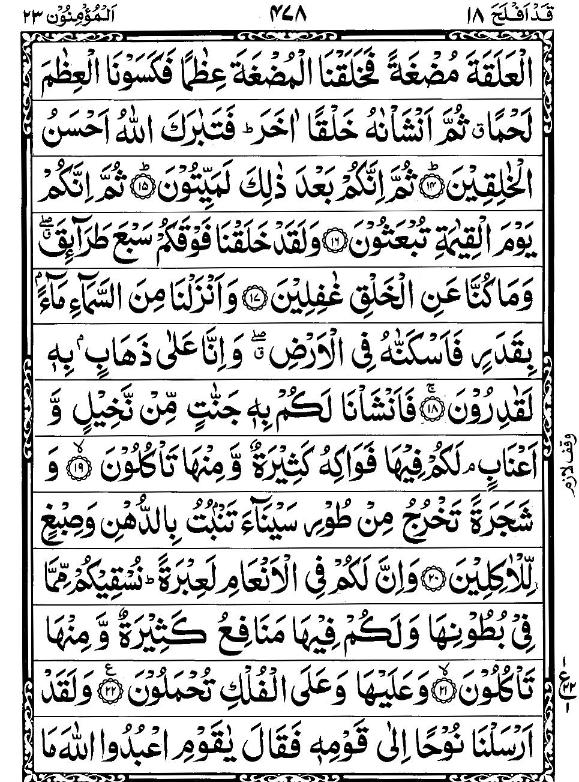 قَدْ اَفْلَحَ ١٨ ٤٧٨ اَلْمُؤْمِنُوْن ٢٣
الْعَلَقَةَ مُضْغَةً فَخَلَقْنَا الْمُضْغَةَ عِظٰمًا فَكَسَوْنَا الْعِظٰمَ
لَحْمًا ۤ ثُمَّ اَنْشَاْنٰهُ خَلْقًا اٰخَرَ ؕ فَتَبٰرَكَ اللّٰهُ اَحْسَنُ
الْخٰلِقِيْنَ ؕ ﴿١٤﴾ ثُمَّ اِنَّكُمْ بَعْدَ ذٰلِكَ لَمَيِّتُوْنَ ؕ ﴿١٥﴾ ثُمَّ اِنَّكُمْ
يَوْمَ الْقِيٰمَةِ تُبْعَثُوْنَ ﴿١٦﴾ وَلَقَدْ خَلَقْنَا فَوْقَكُمْ سَبْعَ طَرَآئِقَ ۖ ۤ
وَمَا كُنَّا عَنِ الْخَلْقِ غٰفِلِيْنَ ﴿١٧﴾ وَاَنْزَلْنَا مِنَ السَّمَآءِ مَآءًۢ
بِقَدَرٍ فَاَسْكَنّٰهُ فِى الْاَرْضِ ۖ ۤ وَاِنَّا عَلٰى ذَهَابٍۢ بِهٖ
لَقٰدِرُوْنَ ۚ ﴿١٨﴾ فَاَنْشَاْنَا لَكُمْ بِهٖ جَنّٰتٍ مِّنْ نَّخِيْلٍ وَّ
اَعْنَابٍ ۘ لَكُمْ فِيْهَا فَوَاكِهُ كَثِيْرَةٌ وَّمِنْهَا تَاْكُلُوْنَ ۙ ﴿١٩﴾ وَ
شَجَرَةً تَخْرُجُ مِنْ طُوْرِ سَيْنَآءَ تَنْۢبُتُ بِالدُّهْنِ وَصِبْغٍ
لِّلْاٰكِلِيْنَ ﴿٢٠﴾ وَاِنَّ لَكُمْ فِى الْاَنْعَامِ لَعِبْرَةً ؕ نُسْقِيْكُمْ مِّمَّا
فِىْ بُطُوْنِهَا وَلَكُمْ فِيْهَا مَنَافِعُ كَثِيْرَةٌ وَّمِنْهَا
تَاْكُلُوْنَ ۙ ﴿٢١﴾ وَعَلَيْهَا وَعَلَى الْفُلْكِ تُحْمَلُوْنَ ﴿٢٢﴾ وَلَقَدْ
اَرْسَلْنَا نُوْحًا اِلٰى قَوْمِهٖ فَقَالَ يٰقَوْمِ اعْبُدُوا اللّٰهَ مَا
وقف لازم
١
ع
٢٢
٢